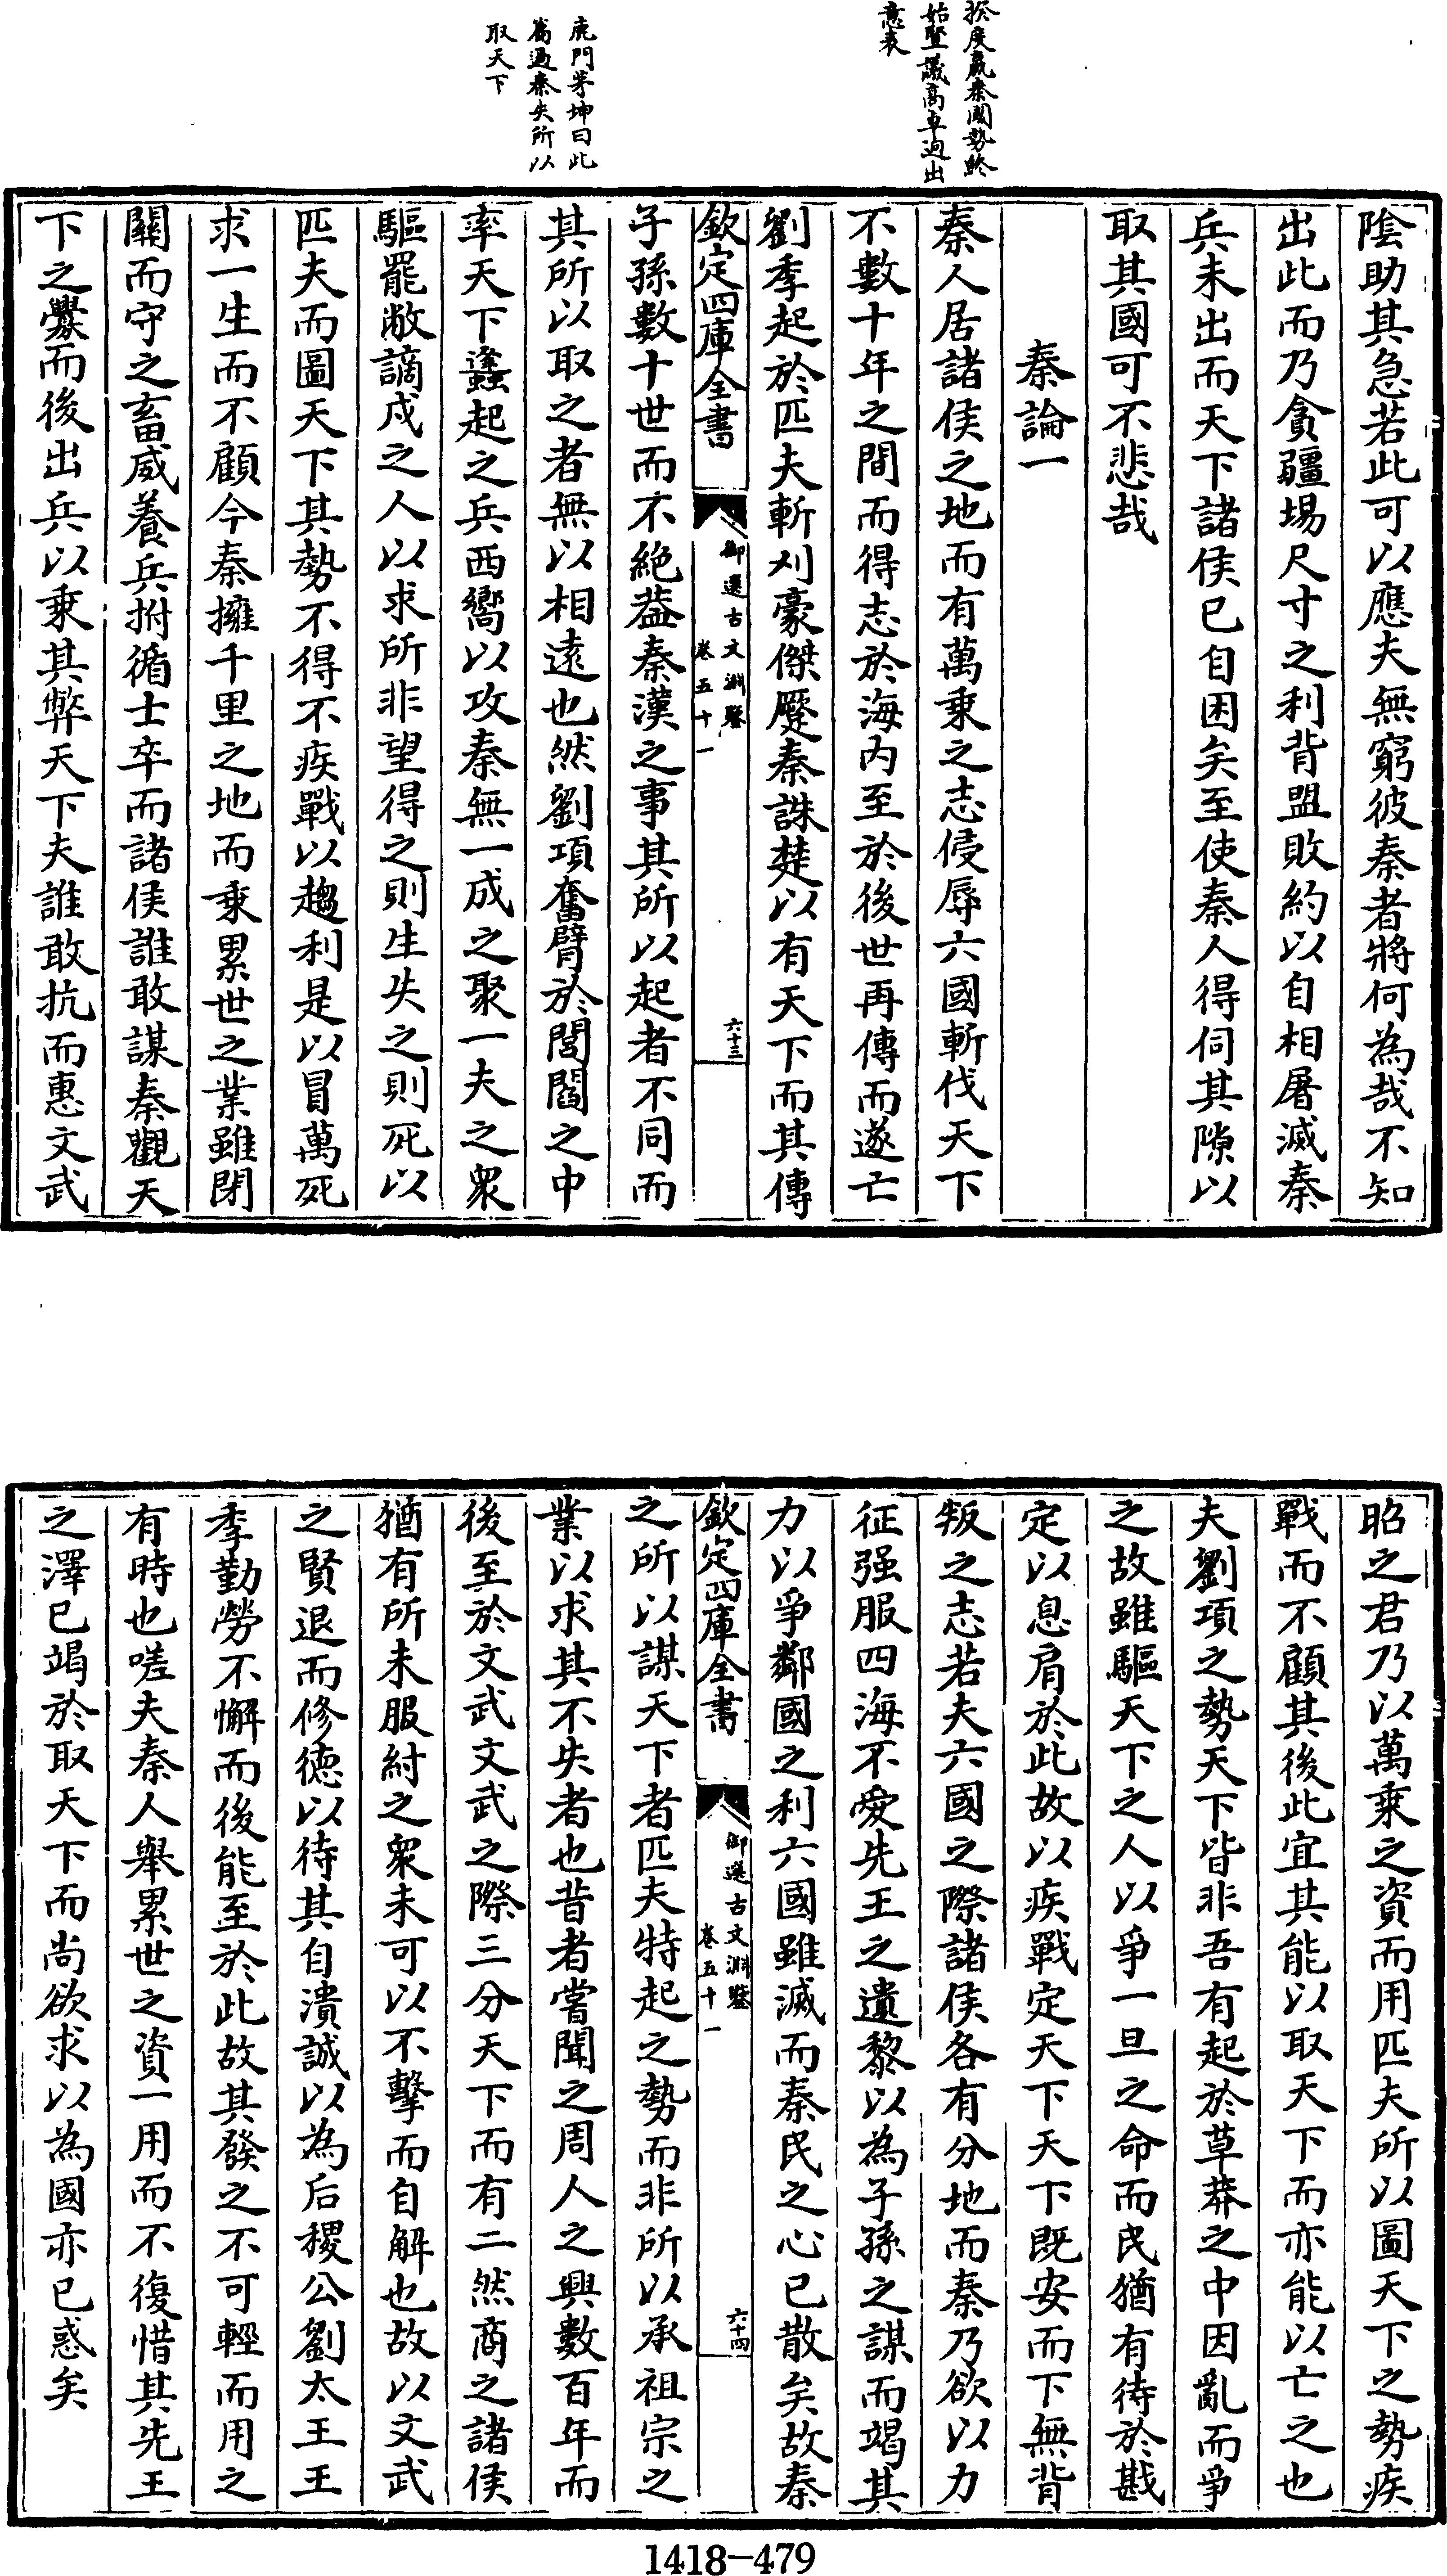 揆度嬴秦國勢終
始豎議高卓迥出
意表
鹿門茅坤曰此
篇過秦失所以
取天下
陰助其急若此可以應夫無窮彼秦者將何為哉不知
出此而乃貪疆埸尺寸之利背盟敗約以自相屠滅秦
兵未出而天下諸侯已自困矣至使秦人得伺其隙以
取其國可不悲哉
秦論一
秦人居諸侯之地而有萬乘之志侵辱六國斬伐天下
不數十年之間而得志於海内至於後世再傳而遂亡
劉季起於匹夫斬刈豪傑蹙秦誅楚以有天下而其傳
欽定四庫全書
御選古文淵鑒
卷五十一
六十三
子孫數十世而不絶葢秦漢之事其所以起者不同而
其所以取之者無以相遠也然劉項奮臂於閭閻之中
率天下蠭起之兵西嚮以攻秦無一成之聚一夫之衆
驅罷敝謫戍之人以求所非望得之則生失之則死以
匹夫而圖天下其勢不得不疾戰以趨利是以冒萬死
求一生而不顧今秦擁千里之地而乘累世之業雖閉
關而守之畜威養兵拊循士卒而諸侯誰敢謀秦觀天
下之釁而後出兵以乘其弊天下夫誰敢抗而惠文武
昭之君乃以萬乘之資而用匹夫所以圖天下之勢疾
戰而不顧其後此宜其能以取天下而亦能以亡之也
夫劉項之勢天下皆非吾有起於草莽之中因亂而爭
之故雖驅天下之人以爭一旦之命而民猶有待於戡
定以息肩於此故以疾戰定天下天下既安而下無背
叛之志若夫六國之際諸侯各有分地而秦乃欲以力
征强服四海不愛先王之遺黎以為子孫之謀而竭其
力以爭鄰國之利六國雖滅而秦民之心已散矣故秦
欽定四庫全書
御選古文淵鑒
卷五十一
六十四
之所以謀天下者匹夫特起之勢而非所以承祖宗之
業以求其不失者也昔者嘗聞之周人之興數百年而
後至於文武文武之際三分天下而有二然商之諸侯
猶有所未服紂之衆未可以不擊而自解也故以文武
之賢退而修德以待其自潰誠以為后稷公劉太王王
季勤勞不懈而後能至於此故其發之不可輕而用之
有時也嗟夫秦人舉累世之資一用而不復惜其先王
之澤已竭於取天下而尚欲求以為國亦已惑矣
1418-479